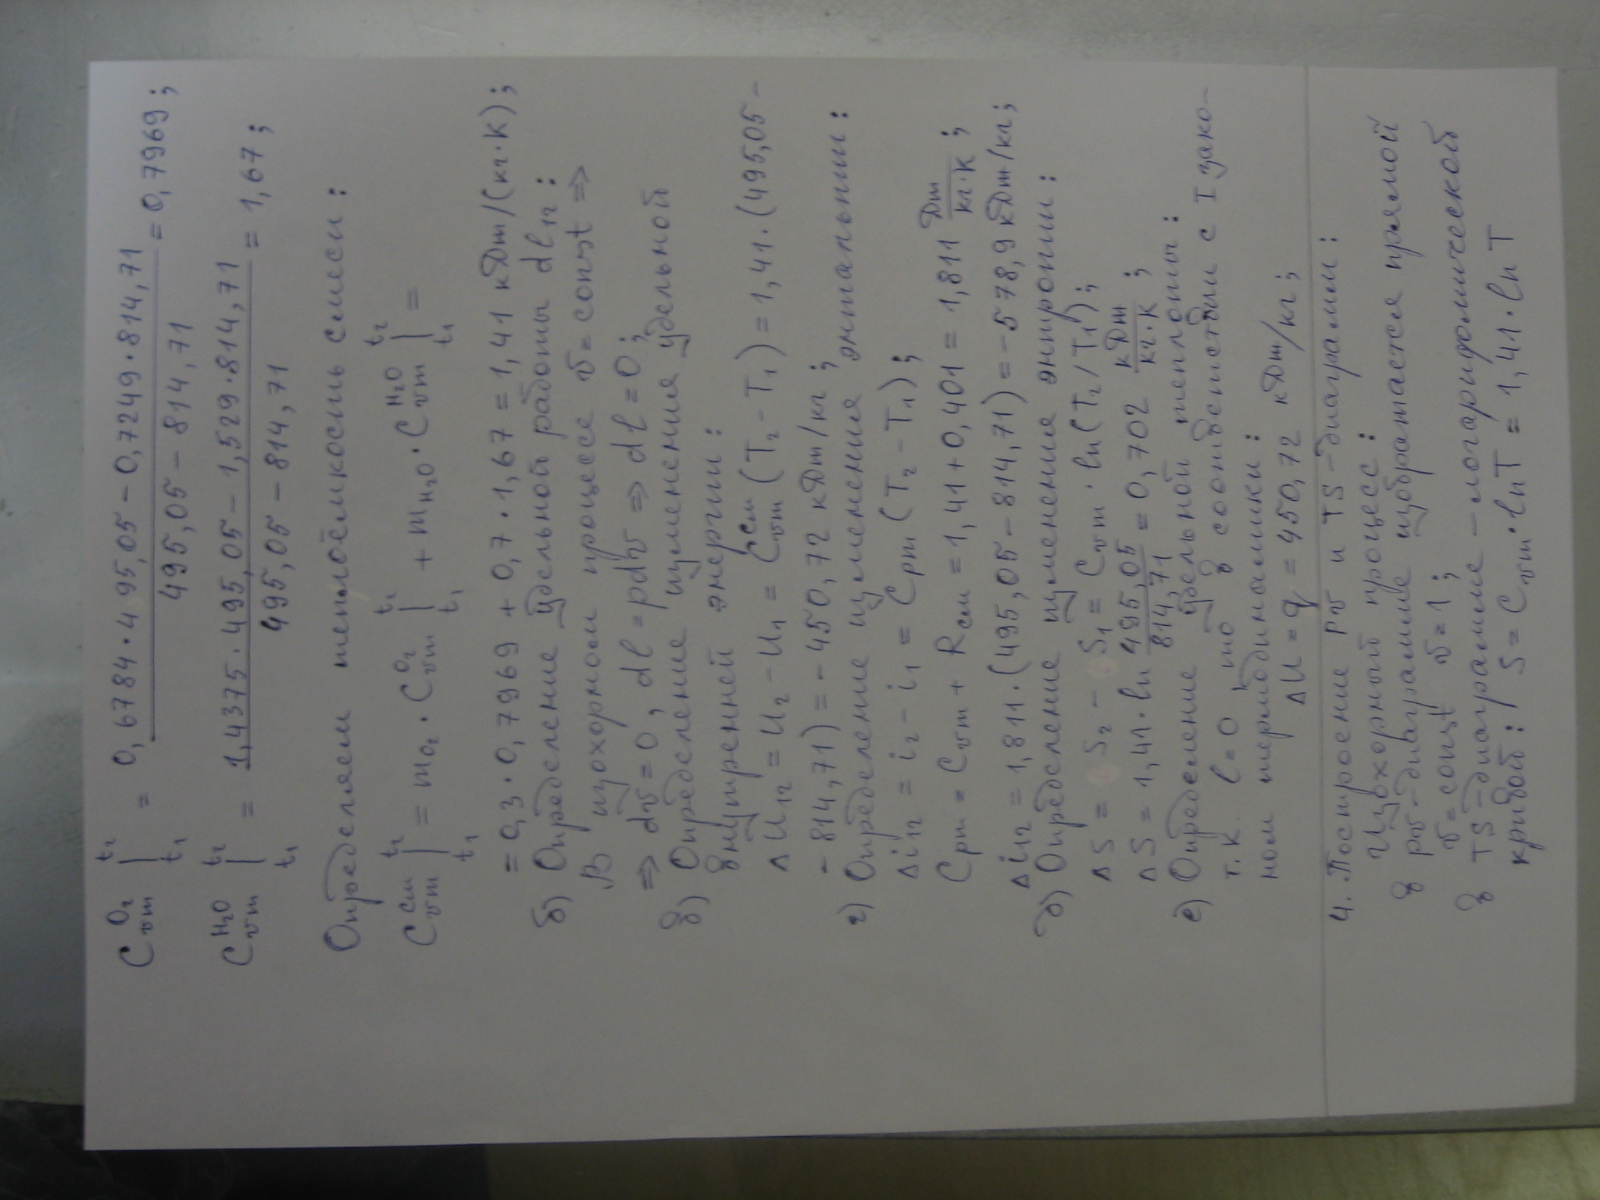 C_vm^O2 |_t1^t2 = (0,6784·495,05 − 0,7249·814,71)/(495,05 − 814,71) = 0,7969;
C_vm^H2O |_t1^t2 = (1,4375·495,05 − 1,529·814,71)/(495,05 − 814,71) = 1,67;
Определяем теплоёмкость смеси:
C_vm^см |_t1^t2 = m_O2 · C_vm^O2 |_t1^t2 + m_H2O · C_vm^H2O |_t1^t2 =
= 0,3·0,7969 + 0,7·1,67 = 1,41 кДж/(кг·К);
б) Определение удельной работы dl12:
В изохорном процессе v = const ⇒
⇒ dv = 0, dl = pdv ⇒ dl = 0;
в) Определение изменения удельной
внутренней энергии:
ΔU12 = U2 − U1 = C_vm^см (T2 − T1) = 1,41·(495,05 −
− 814,71) = − 450,72 кДж/кг;
г) Определение изменения энтальпии:
Δi12 = i2 − i1 = Cpm (T2 − T1);
Cpm = Cvm + Rсм = 1,41 + 0,401 = 1,811 Дж/кг·К;
Δi12 = 1,811·(495,05 − 814,71) = − 578,9 кДж/кг;
д) Определение изменения энтропии:
ΔS = S2 − S1 = Cvm · ln(T2/T1);
ΔS = 1,41·ln 495,05/814,71 = 0,702 кДж/кг·К;
е) Определение удельной теплоты:
т.к. l = 0, то в соответствии с I зако-
ном термодинамики:
ΔU = q = 450,72 кДж/кг;
4. Построение pv и TS-диаграмм:
Изохорный процесс:
в pv-диаграмме изображается прямой
v = const v = 1;
в TS-диаграмме – логарифмической
кривой: S = Cvm·lnT = 1,41·lnT